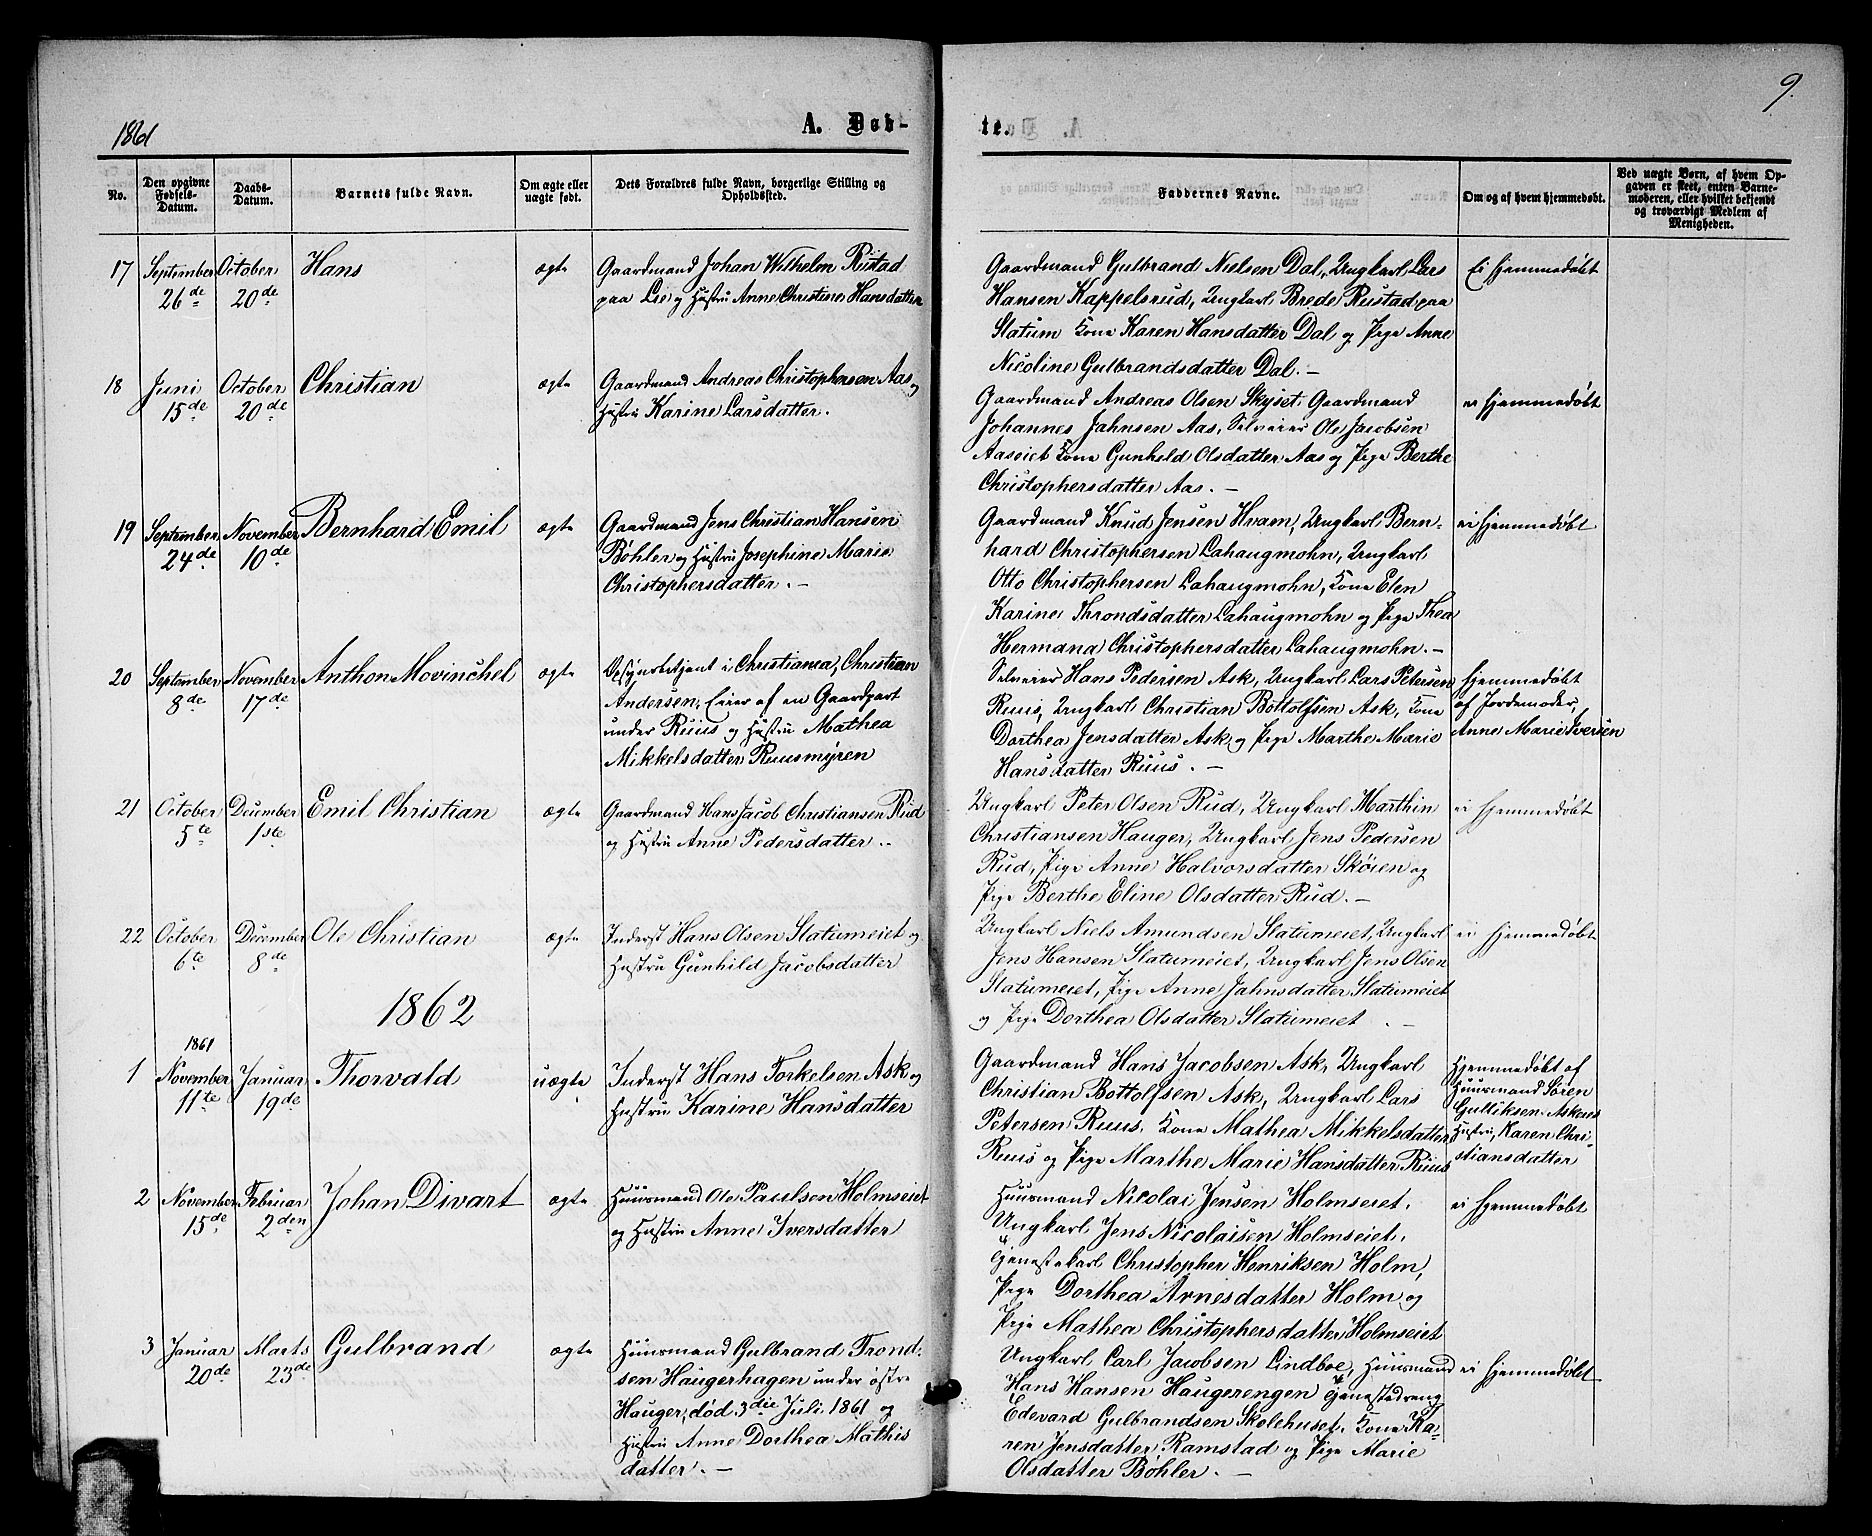 1861
A. Døb-
te.
9.
No.
Den opgivne Fødsels-Datum.
Daabs-Datum.
Barnets fulde Navn.
Om ægte eller uægte født.
Dets Forældres fulde Navn, borgerlige Stilling og Opholdssted.
Faddernes Navne.
Om og af hvem hjemmedøbt.
Ved uægte Børn, af hvem Opgaven er skeet, enten Barnemoderen, eller hvilket bekjendt og troværdigt Medlem af Menigheden.
17
September 26de
October 20de
Hans
ægte
Gaardmand Johan Wilhelm Ristad
paa Lie og Hustru Anne Christine Hansdatter
Gaardmand Gulbrand Nielsen Dal, Ungkarl Lars
Hansen Kappelsrud, Ungkarl Brede Rustad paa
Slatum Kone Karen Hansdatter Dal og Pige Anne
Nicoline Gulbrandsdatter Dal. —
Ei hjemmedøbt
18
Juni 15de
October 20de
Christian
ægte
Gaardmand Andreas Christophersen Aas og
Hustru Karine Larsdatter.
Gaardmand Andreas Olsen Skyset, Gaardmand
Johannes Jahnsen Aas, Selveier Ole Jacobsen
Aaseiet Kone Gunhild Olsdatter Aas og Pige Berthe
Christophersdatter Aas. —
ei hjemmedøbt
19
September 24de
November 10de
Bernhard Emil
ægte
Gaardmand Jens Christian Hansen
Bøhler og Hustru Josephine Marie
Christophersdatter. —
Gaardmand Knud Jensen Hvam, Ungkarl Bern-
hard Christophersen Lahaugmohn, Ungkarl
Otto Christophersen Lahaugmohn, Kone Elen
Karine Throndsdatter Lahaugmohn og Pige Thea
Hermana Christophersdatter Lahaugmohn. —
ei hjemmedøbt
20
September 8de
November 17de
Anthon Movinchel
ægte
Opsynsbetjent i Christiania, Christian
Andersen, Eier af en Gaardpart
under Ruus og Hustru Mathea
Mikkelsdatter Ruusmyren
Selveier Hans Pedersen Ask, Ungkarl Lars Petersen
Ruus, Ungkarl Christian Bottolfsen Ask, Kone
Dorthea Jensdatter Ask og Pige Marthe Marie
Hansdatter Ruus. —
hjemmedøbt
af Jordemoder,
Anne Marie Iversen
21
October 5te
December 1ste
Emil Christian
ægte
Gaardmand Hans Jacob Christiansen Rud
og Hustru Anne Pedersdatter.
Ungkarl Peter Olsen Rud, Ungkarl Marthin
Christiansen Hauger, Ungkarl Jens Pedersen
Rud, Pige Anne Halvorsdatter Skøien og
Pige Berthe Eline Olsdatter Rud. —
ei hjemmedøbt
22
October 6te
December 8de
Ole Christian
ægte
Inderst Hans Olsen Slatumeiet og
Hustru Gunhild Jacobsdatter
Ungkarl Niels Amundsen Slatumeiet, Ungkarl
Jens Hansen Slatumeiet, Ungkarl Jens Olsen
Slatumeiet, Pige Anne Jahnsdatter Slatumeiet
og Pige Dorthea Olsdatter Slatumeiet. —
ei hjemmedøbt
1862
1
1861 November 11te
Januar 19de
Thorvald
uægte
Inderst Hans Torkelsen Ask og
Hustru Karine Hansdatter
Gaardmand Hans Jacobsen Ask, Ungkarl
Christian Bottolfsen Ask, Ungkarl Lars
Petersen Ruus, Kone Mathea Mikkelsdatter
Ruus og Pige Marthe Marie Hansdatter Ruus
Hjemmedøbt af
Huusmand Søren
Gulliksen Askeies
Hustru, Karen Chri-
stiansdatter
2
November 15de
Februar 2den
Johan Divart
ægte
Huusmand Ole Paulsen Holmseiet
og Hustru Anne Iversdatter
Huusmand Nicolai Jensen Holmseiet,
Ungkarl Jens Nicolaisen Holmseiet,
Tjenestekarl Christopher Henriksen Holm,
Pige Dorthea Arnesdatter Holm og
Pige Mathea Christophersdatter Holmseiet
ei hjemmedøbt
3
Januar 20de
Marts 23de
Gulbrand
ægte
Huusmand Gulbrand Trond-
sen Haugerhagen under østre
Hauger, død 3die Juli 1861 og
Hustru Anne Dorthea Mathis
datter. —
Ungkarl Carl Jacobsen Lindboe, Huusmand
Hans Hansen Haugerengen Tjenestedreng
Edevard Gulbrandsen Skolehuset, Kone Ka-
ren Jensdatter Ramstad og Pige Marie
Olsdatter Bøhler. —
ei hjemmedøbt